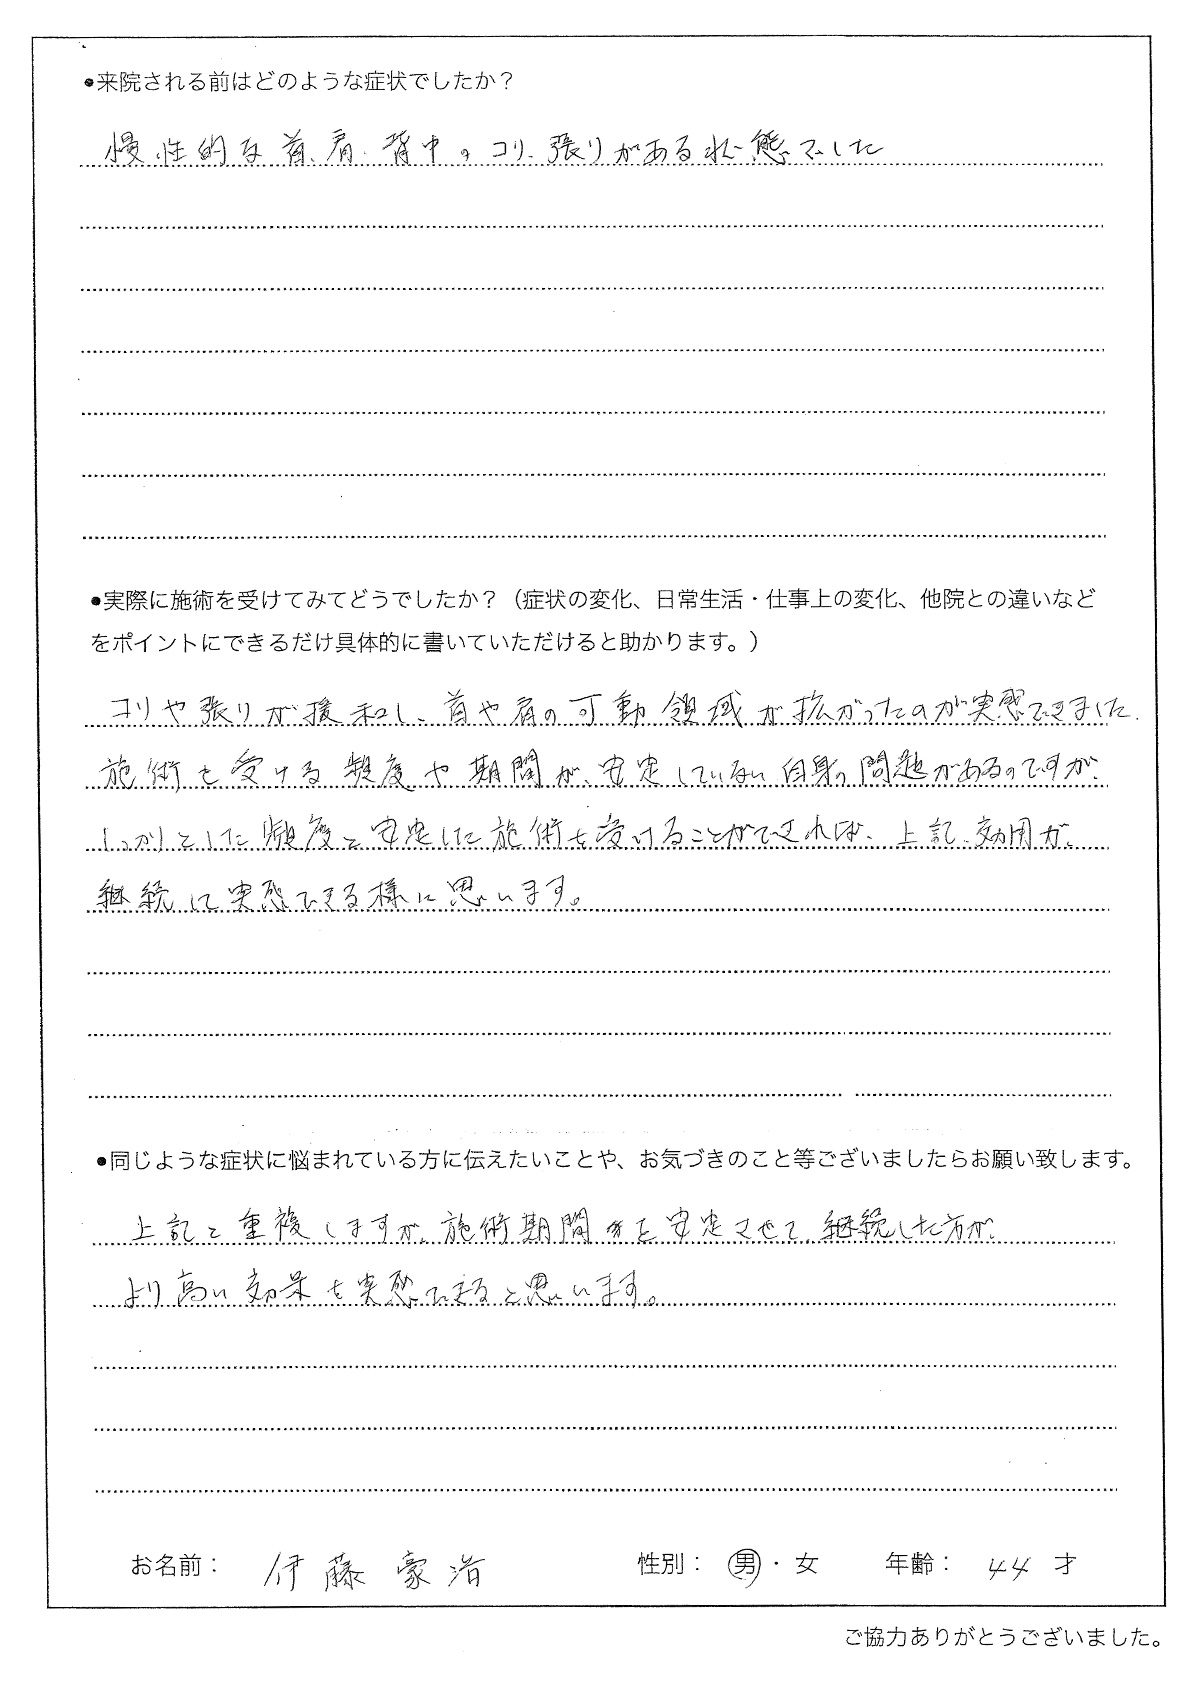 ●来院される前はどのような症状でしたか？
慢性的な首、肩、背中のコリ、張りがある状態でした
●実際に施術を受けてみてどうでしたか？（症状の変化、日常生活・仕事上の変化、他院との違いなど
をポイントにできるだけ具体的に書いていただけると助かります。）
コリや張りが援和し、首や肩の可動領域が拡がったのが実感できました。
施術を受ける頻度や期間が、安定していない自身の問題があるのですが、
しっかりとした頻度と安定した施術を受けることができれば、上記、効用が、
継続して実感できる様に思います。
●同じような症状に悩まれている方に伝えたいことや、お気づきのこと等ございましたらお願い致します。
上記と重複しますが、施術期間を安定させて、継続した方が、
より高い効果を実感できると思います。
お名前： 伊藤豪治 性別： 男・女 年齢： 44 才
ご協力ありがとうございました。